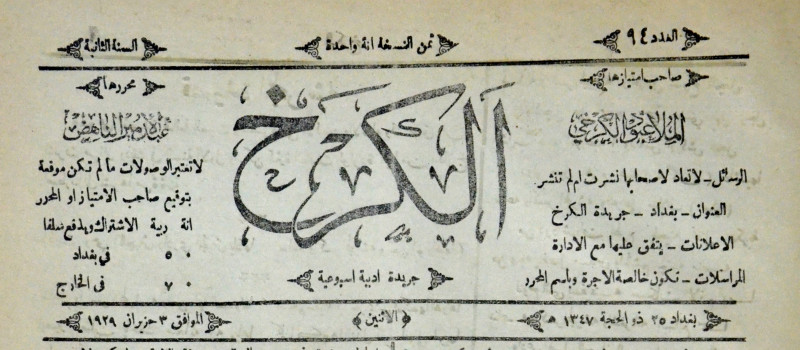 العدد ٩٤
ثمن النسخة انة واحدة
السنة الثانية
صاحب امتيازها
الملا عبود الكرخي
الرسائل ـ لاتعاد لاصحابها نشرت ام لم تنشر
العنوان ـ بغداد ـ جريدة الكرخ
الاعلانات ـ يتفق عليها مع الادارة
المراسلات ـ تكون خالصة الاجرة وباسم المحرر
الكرخ
جريدة ادبية اسبوعية
محررها
عبدالامير الناهض
لاتعتبر الوصولات ما لم تكن موقعة
بتوقيع صاحب الامتياز او المحرر
انة ربية الاشتراك ويدفع سلفا
٠ ٥ في بغداد
٠ ٧ في الخارج
بغداد ٢٥ ذو الحجة ١٣٤٧ هـ
(الاثنين)
الموافق ٣ حزيران ١٩٢٩